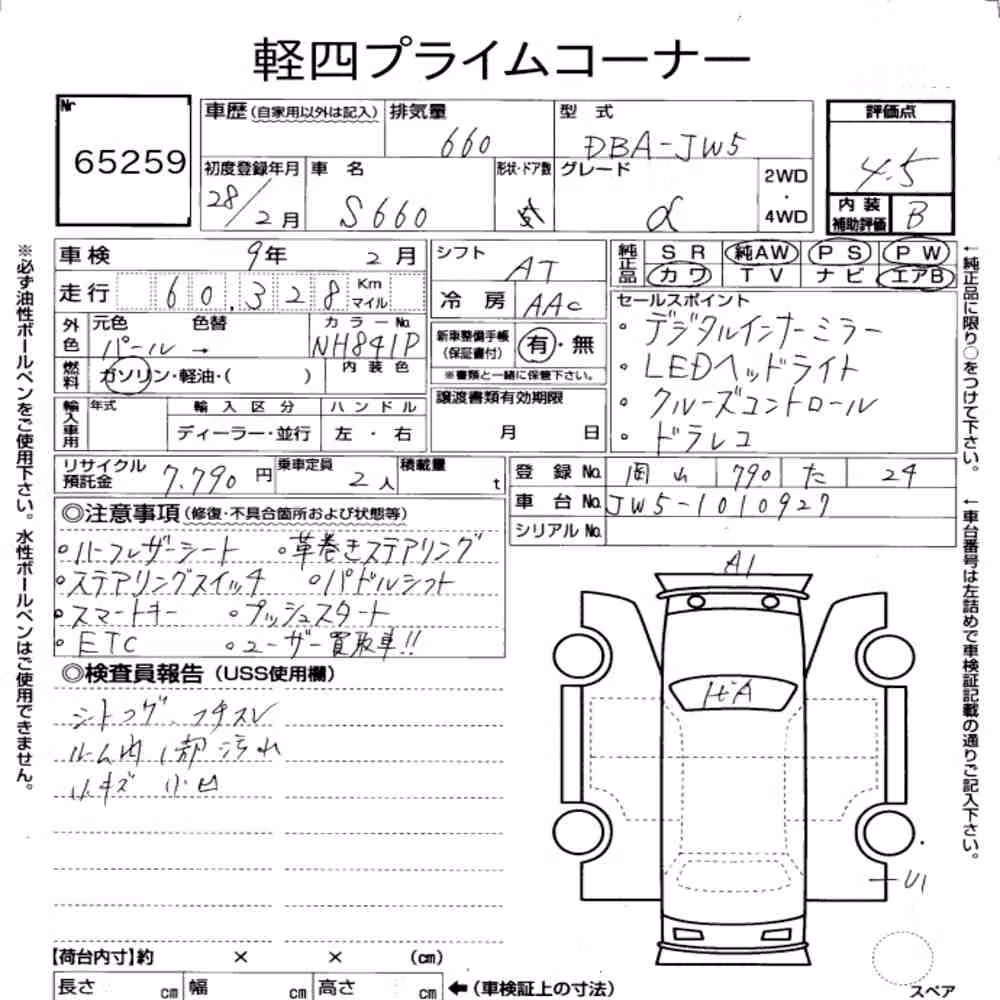 軽四プライムコーナー
Nr
65259
車歴(自家用以外は記入)
排気量
660
型 式
DBA-JW5
評価点
4.5
初度登録年月
28/2月
車 名
S660
形状・ドア数
グレード
α
2WD
・
4WD
内 装
補助評価
B
車検
9年 2月
走行
60,328
Km
マイル
外色
元色
パール
色替
→
カラーNo.
NH841P
内装色
燃料
ガソリン・軽油・( )
輸入車用
年式
輸入区分
ディーラー・並行
ハンドル
左・右
シフト
AT
冷房
AAC
新車整備手帳
(保証書付)
有・無
※書類と一緒に保管下さい。
譲渡書類有効期限
月 日
純正品
SR 純AW PS PW
カワ TV ナビ エアB
セールスポイント
・デジタルインナーミラー
・LEDヘッドライト
・クルーズコントロール
・ドラレコ
リサイクル
預託金
7,790円
乗車定員
2人
積載量
t
登録No.
岡山 790 た 24
車台No.
JW5-1010927
シリアルNo.
◎注意事項(修復・不具合箇所および状態等)
・ハーフレザーシート ・革巻きステアリング
・ステアリングスイッチ ・パドルシフト
・スマートキー ・プッシュスタート
・ETC ・ユーザー買取車!!
◎検査員報告(USS使用欄)
シートコゲ、フチスレ
ルーム内1部汚れ
小キズ 小凹
A1
U1
【荷台内寸】約 × × (cm)
長さ cm 幅 cm 高さ cm
←(車検証上の寸法)
スペア
※必ず油性ボールペンをご使用下さい。水性ボールペンはご使用できません。
←純正品に限り○をつけて下さい。
←車台番号は左詰めで車検証記載の通りご記入下さい。